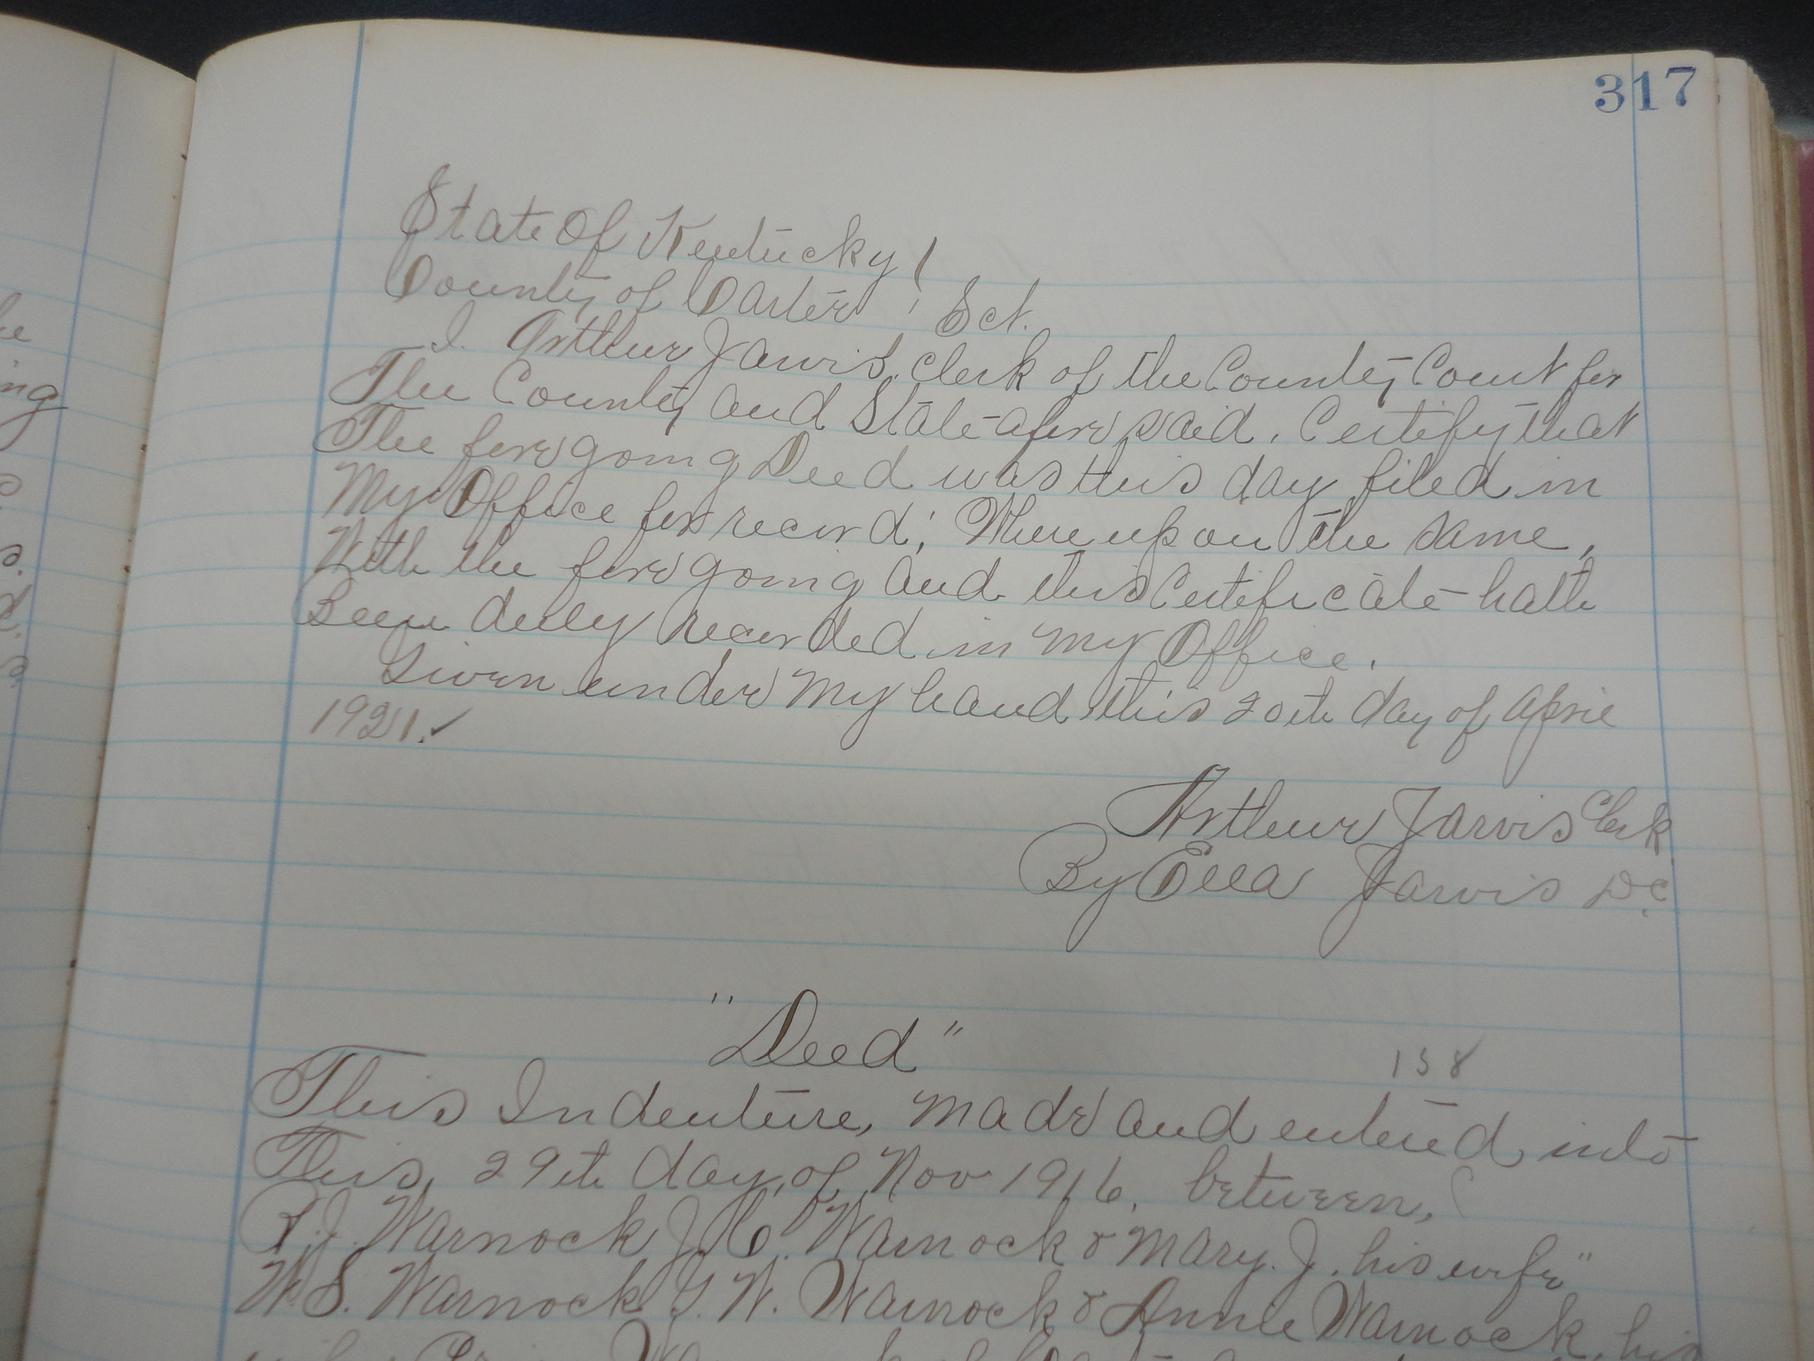 317
State Of Kentucky }
County of Carter } Sct.
I. Arthur Jarvis, clerk of the County Court for
The County and State aforesaid. Certify that
The foregoing Deed was this day filed in
My Office for record; Whereupon the same,
With the foregoing and this Certificate hath
Been duly recorded in My Office.
Given under My hand this 20th day of April
1921.✓
Arthur Jarvis Clerk
By Ella Jarvis D.C.
"Deed"
138
This Indenture, made and entered into
This, 29th day, of, Nov 1916, between,
Warnock, J. C. Warnock & Mary. J. his wife"
W.S. Warnock, G. W. Warnock & Annie Warnock, his
ing